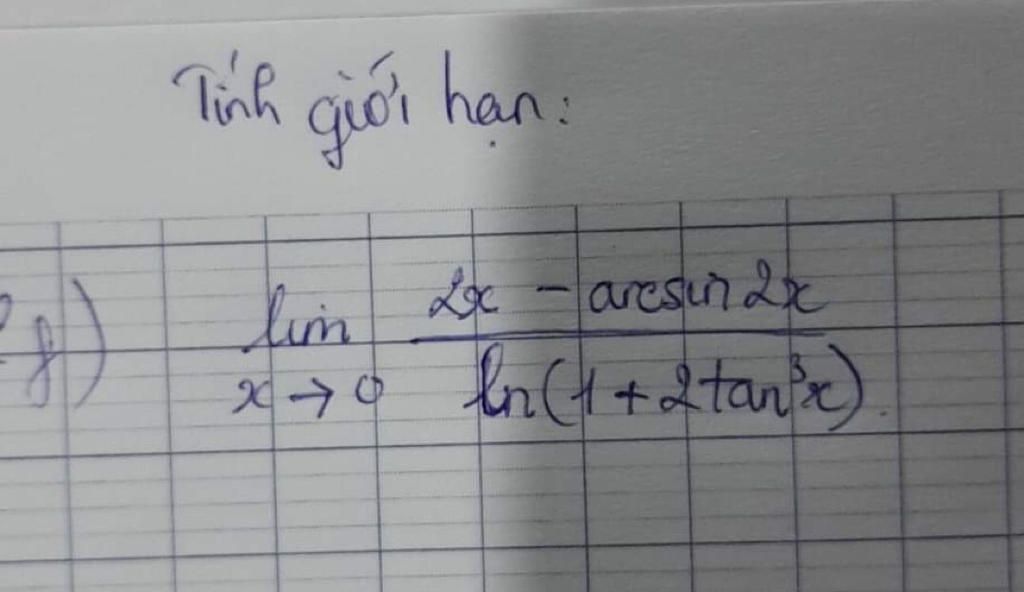 Tính giới hạn:
f) lim x→0 (2x − arcsin 2x) / (ln(1 + 2tan³x)).